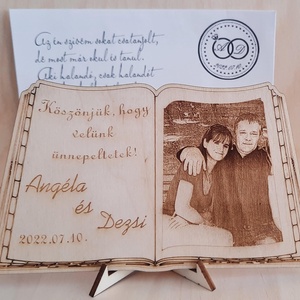 Az én szívem sokat csatangolt,
de most már okul és tanul.
Aki halandó, csak halandót
A D
2022.07.10.
Köszönjük, hogy
velünk
ünnepeltetek!
Angéla
és
Dezsi
2022.07.10.